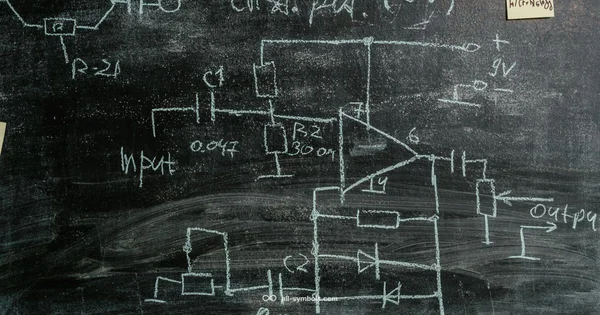 R-21
+
9V
-
C1
7
6
R2
30 om
0.047
Input
14
Outpu
C2
all-symbols.com